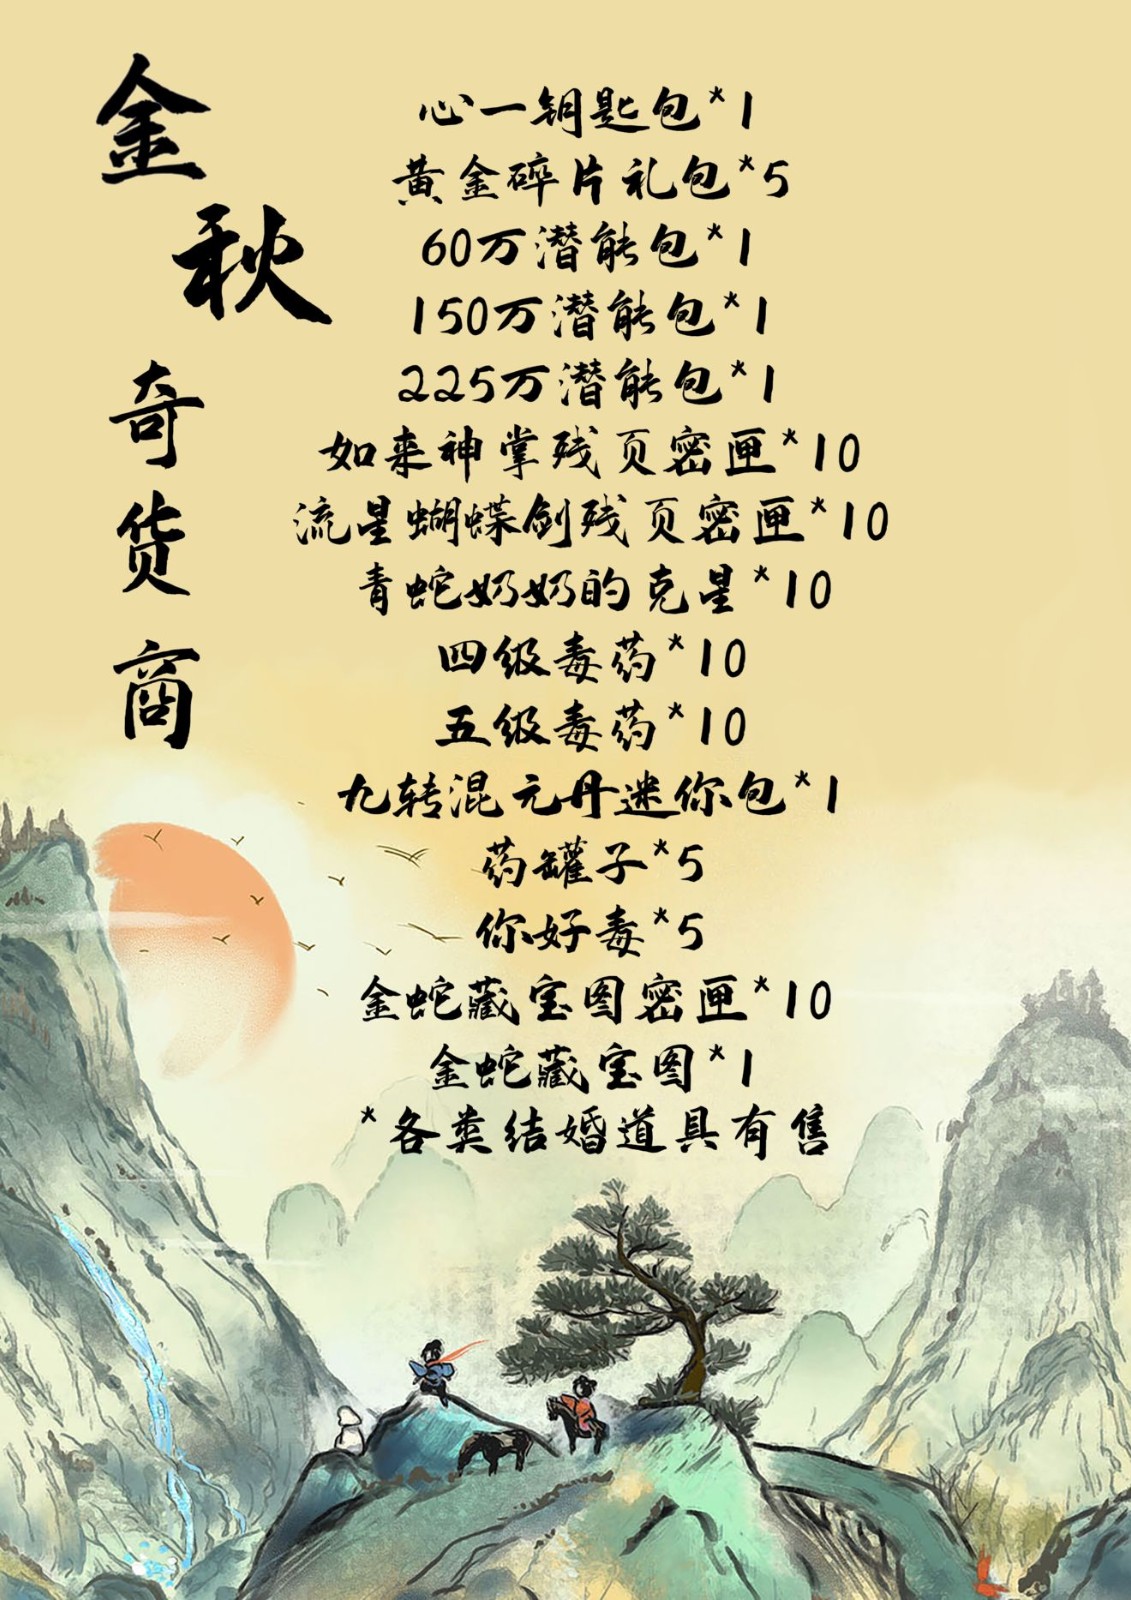 金秋
奇货商
心一钥匙包*1
黄金碎片礼包*5
60万潜能包*1
150万潜能包*1
225万潜能包*1
如来神掌残页密匣*10
流星蝴蝶剑残页密匣*10
青蛇奶奶的克星*10
四级毒药*10
五级毒药*10
九转混元丹迷你包*1
药罐子*5
你好毒*5
金蛇藏宝图密匣*10
金蛇藏宝图*1
*各类结婚道具有售